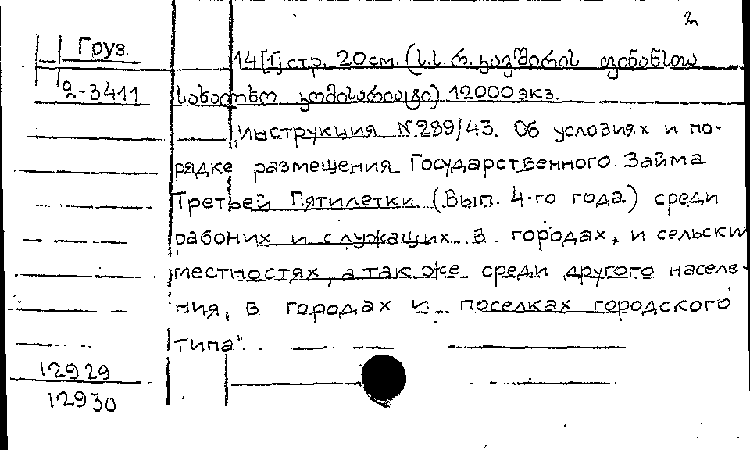 2
Груз.
14[1]стр. 20см. (სსრ. კავშირის ფინანსთა
2-3411
სახალხო კომისარიატი) 12000 экз.
„Инструкция №289/43. Об условиях и по-
рядке размещения Государственного Займа
Третьей Пятилетки (Вып. 4-го года) среди
рабочих и служащих в городах, и сельски
местностях, а так же среди другого населе-
ния, в городах и поселках городского
типа".
12929
12930